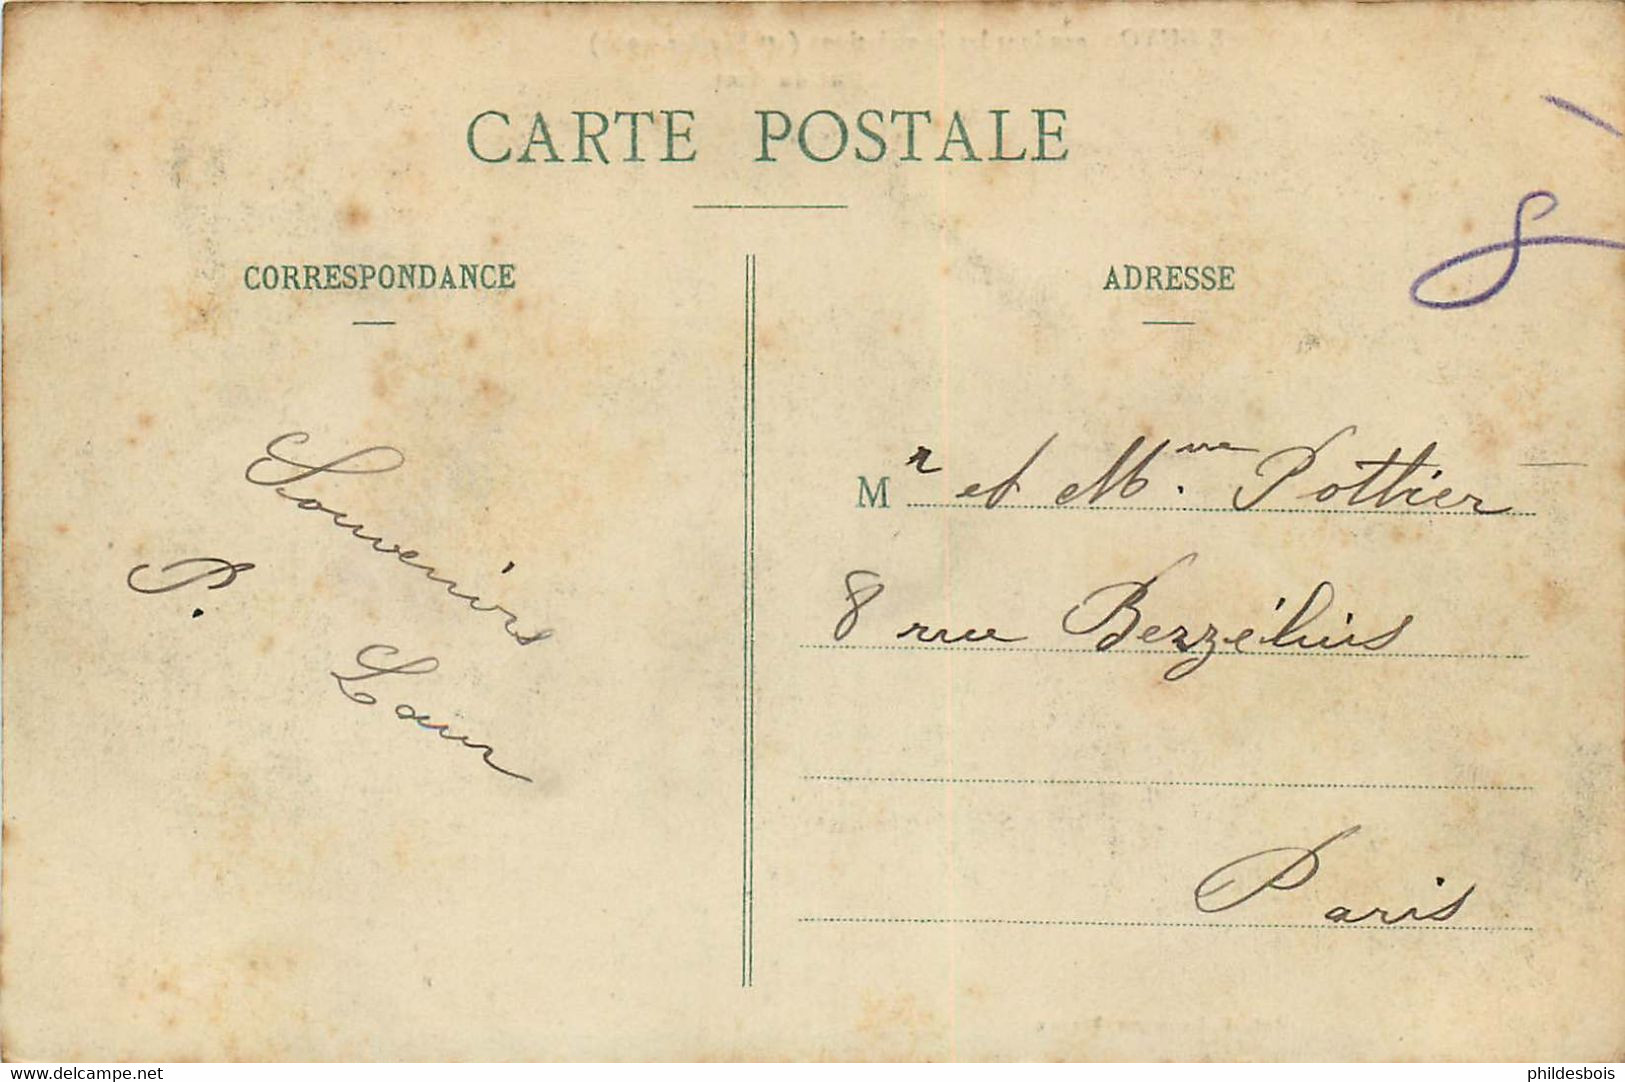 CARTE POSTALE
CORRESPONDANCE
ADRESSE
Souvenirs
P. Laur
Mr et Mme. Pottier
8 rue Bezzélius
Paris
8
www.delcampe.net
phildesbois